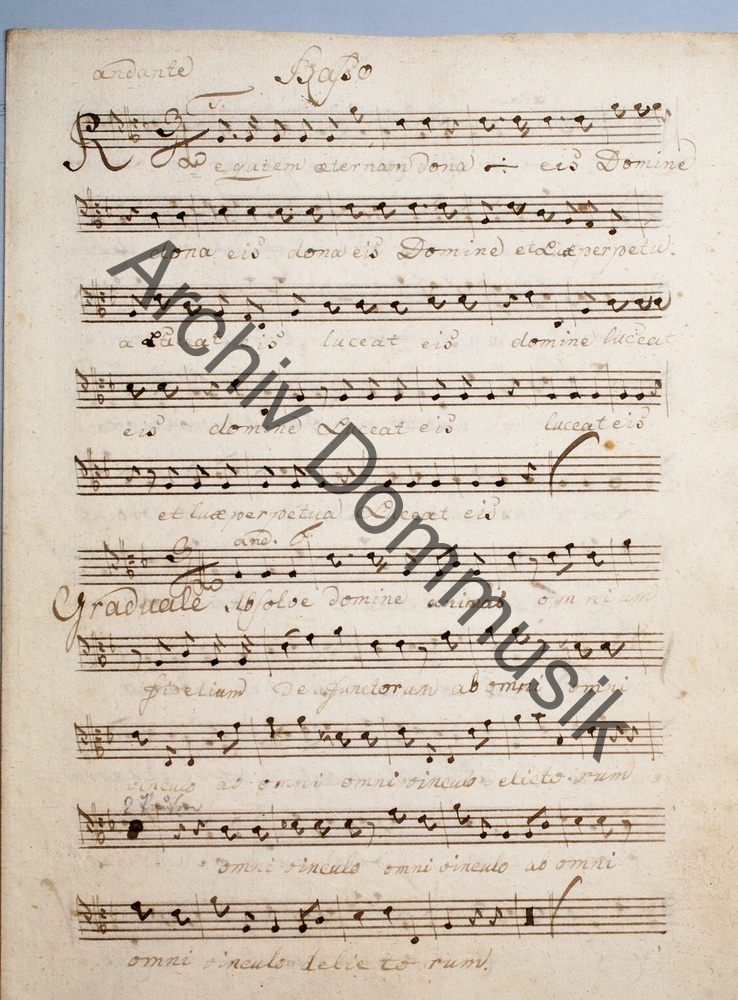 andante Basso
T.
Requiem æternam dona eis Domine
dona eis dona eis Domine et Lux perpetu-
a Luceat eis luceat eis domine luceat
eis domine Luceat eis luceat eis
et lux perpetua Luceat eis
and.
Graduale Absolve domine animas omnium
fidelium Defunctorum ab omni omni
vinculo ab omni omni vinculo delictorum
omni vinculo omni vinculo ab omni
omni vinculo delictorum.
Archiv Dommusik